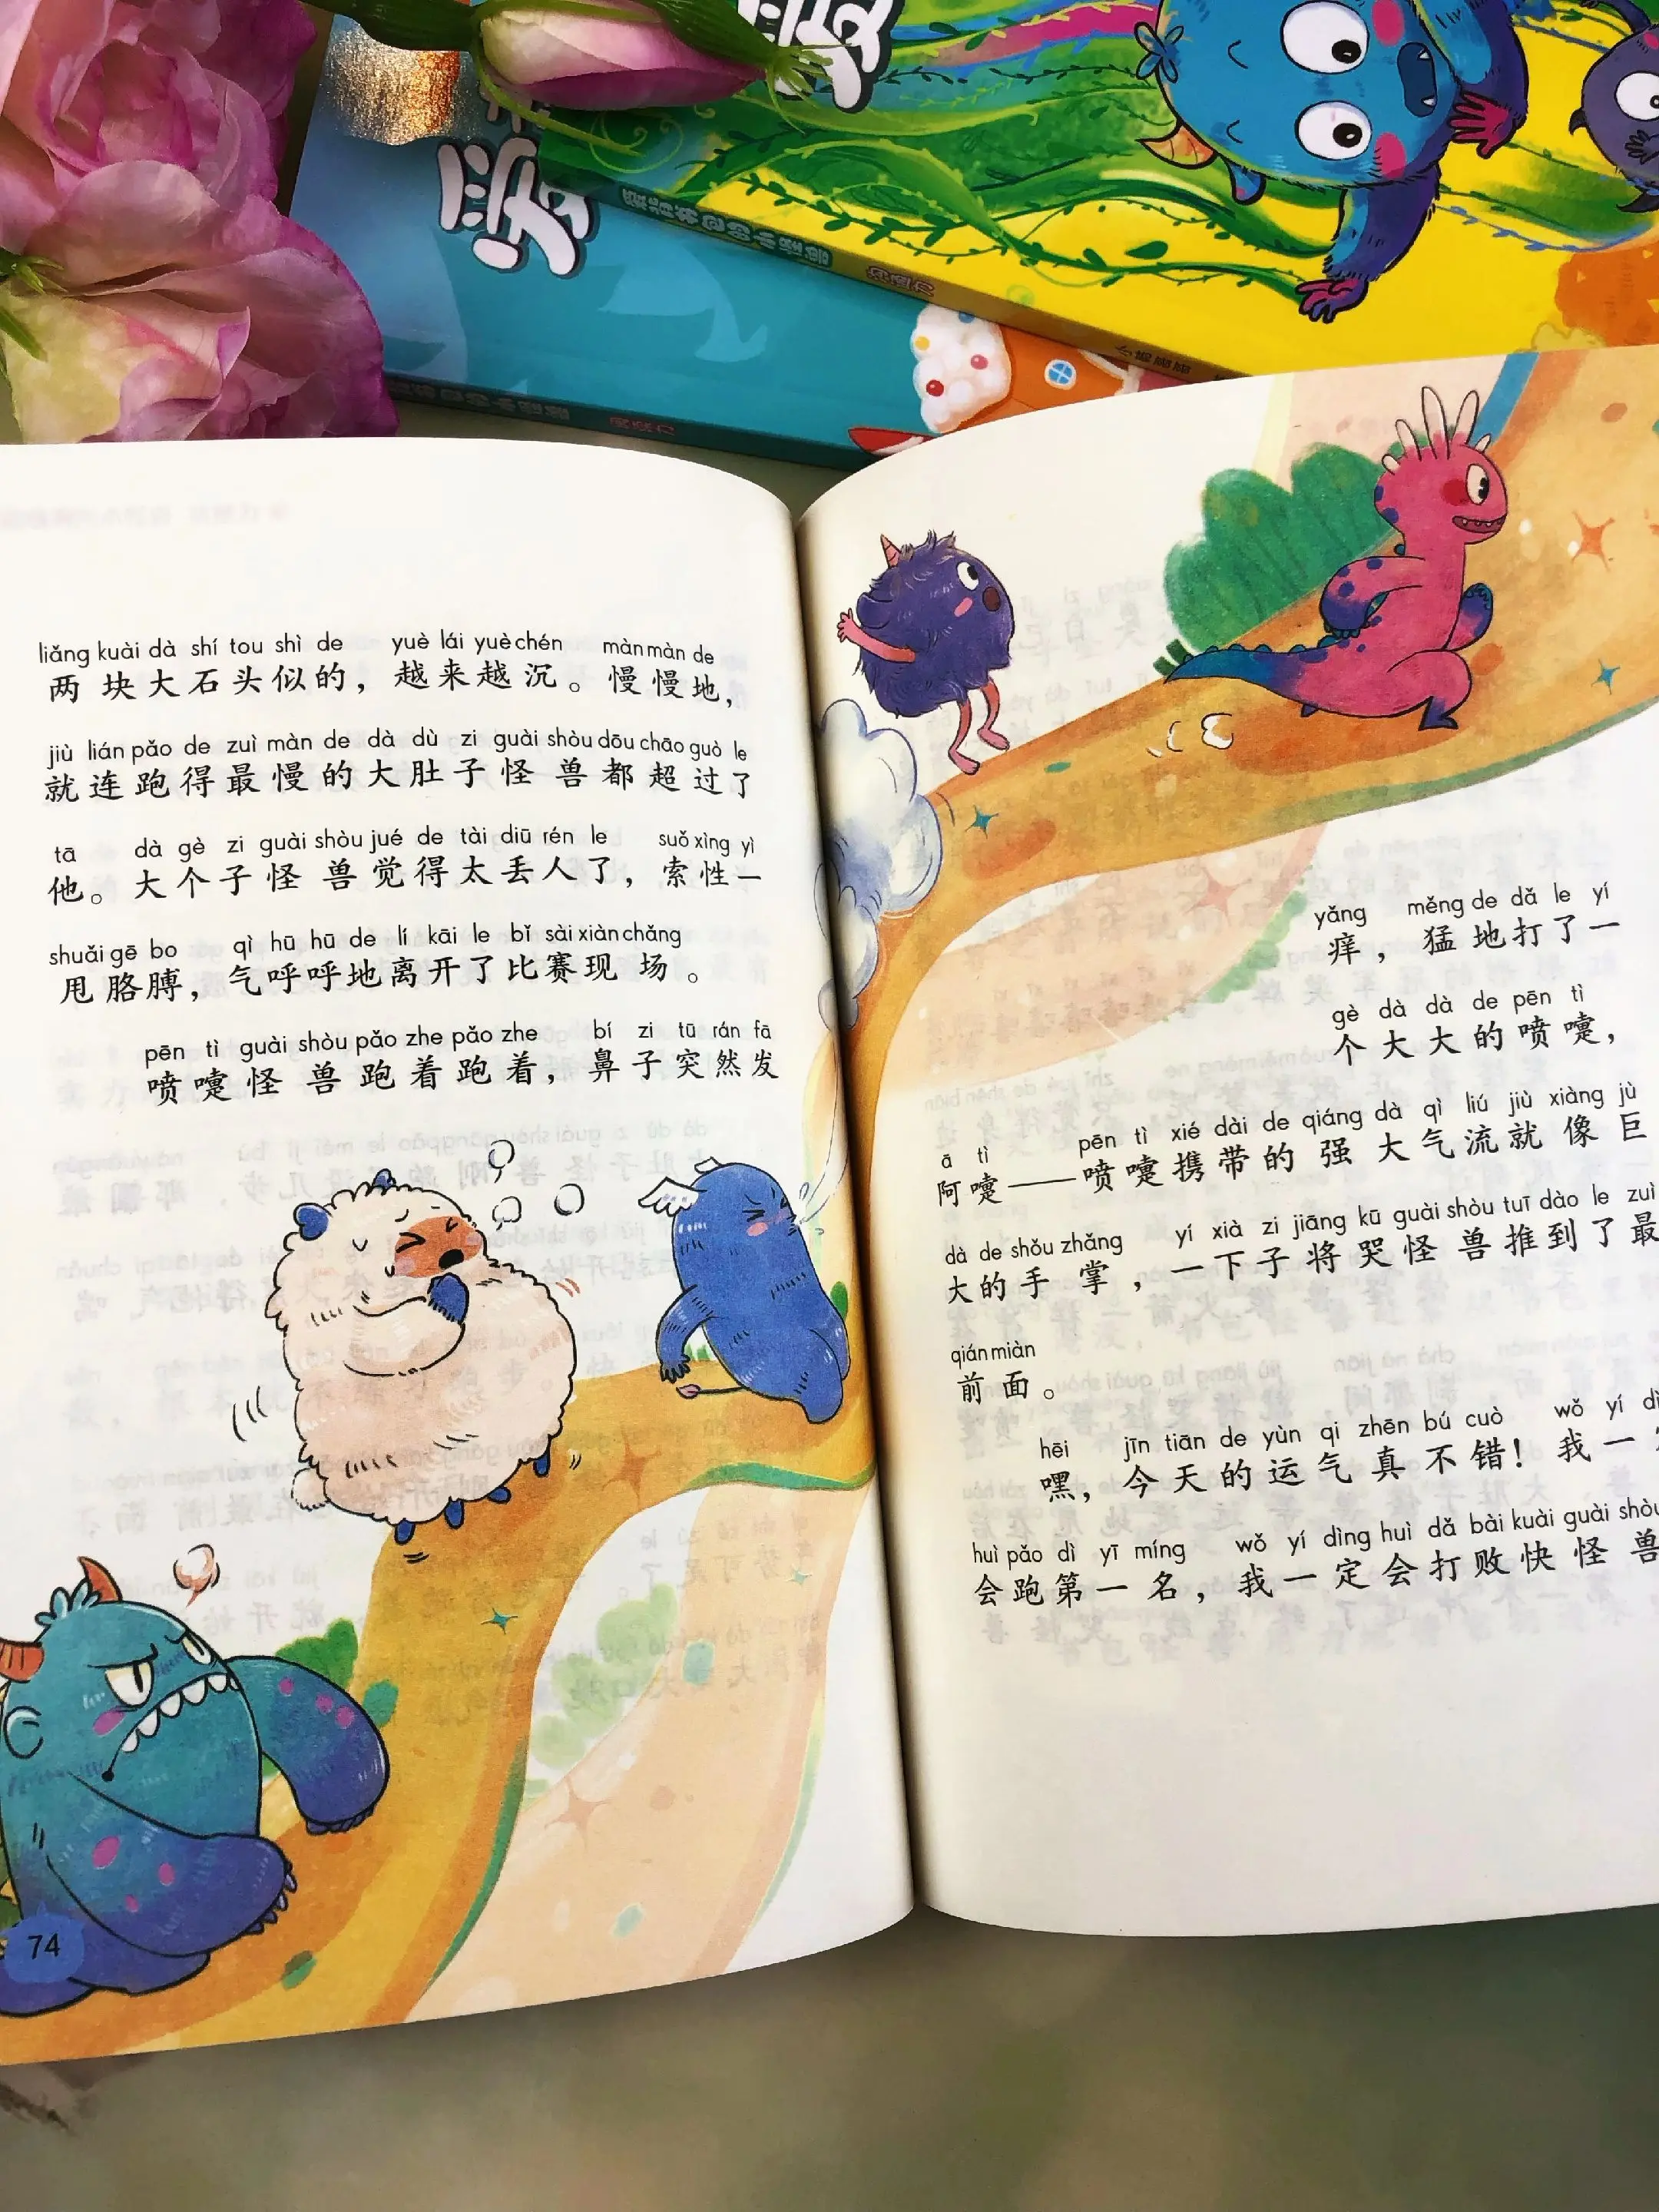 liǎng kuài dà shí tou shì de yuè lái yuè chén màn màn de
两块大石头似的，越来越沉。慢慢地，
jiù lián pǎo de zuì màn de dà dù zi guài shòu dōu chāo guò le
就连跑得最慢的大肚子怪兽都超过了
tā dà gè zi guài shòu jué de tài diū rén le suǒ xìng yì
他。大个子怪兽觉得太丢人了，索性一
shuǎi gē bo qì hū hū de lí kāi le bǐ sài xiàn chǎng
甩胳膊，气呼呼地离开了比赛现场。
pēn tì guài shòu pǎo zhe pǎo zhe bí zi tū rán fā
喷嚏怪兽跑着跑着，鼻子突然发
74
yǎng měng de dǎ le yí
痒，猛地打了一
gè dà dà de pēn tì
个大大的喷嚏，
ā tì pēn tì xié dài de qiáng dà qì liú jiù xiàng jù
阿嚏——喷嚏携带的强大气流就像巨
dà de shǒu zhǎng yí xià zi jiāng kū guài shòu tuī dào le zuì
大的手掌，一下子将哭怪兽推到了最
qián miàn
前面。
hēi jīn tiān de yùn qi zhēn bú cuò wǒ yí
嘿，今天的运气真不错！我一
huì pǎo dì yī míng wǒ yí dìng huì dǎ bài kuài guài shòu
会跑第一名，我一定会打败快怪兽